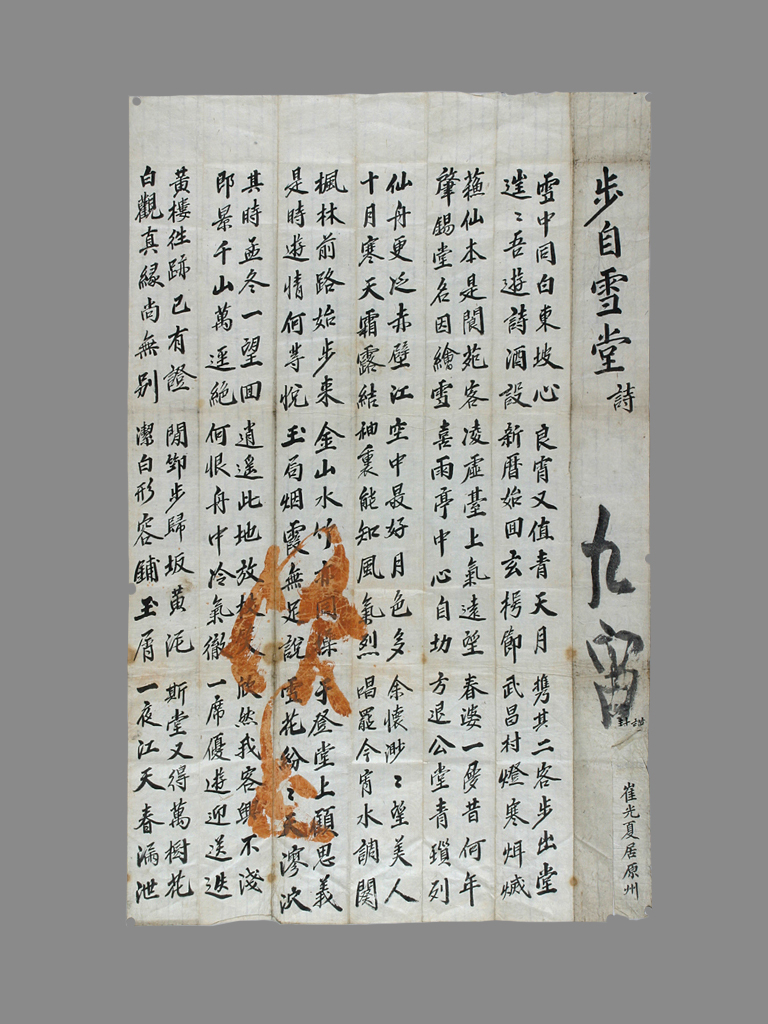 步自雪堂詩
九
崔光夏居原州
雪中同白東坡心 良宵又值青天月 携其二客步出堂
〻吾遊詩酒設 新曆始回玄枵節 武昌村燈寒滅
蘓仙本是閬苑客 凌虛臺上氣遠望 春婆一夢昔何年
肇錫堂名因繪雪 喜雨亭中心自切 方退公堂青瑣列
仙舟更泛赤壁江 空中最好月色多 余懷渺〻望美人
十月寒天霜露結 袖裏能知風氣烈 唱罷今宵水調闋
楓林前路始步來 金山水竹有同 于登堂上顧思義
是時遊情何等悅 玉局烟霞無足說 雪花紛〻天漻泬
其時孟冬一望回 逍遙此地放 欣然我客興不淺
即景千山萬逕絕 何恨舟中冷氣徹 一席優遊迎送迭
黃樓徃跡已有證 閒卸步歸坂黃泥 斯堂又得萬樹花
白觀真緣尚無別 潔白形容鋪玉屑 一夜江天春漏泄